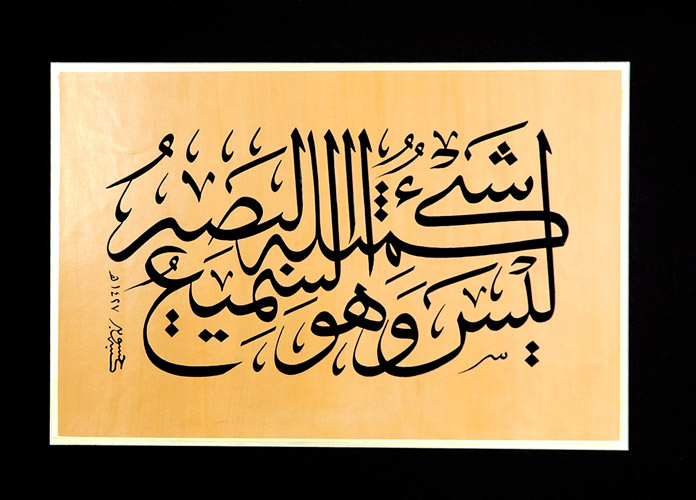 لَيْسَ كَمِثْلِهِ شَيْءٌ
وَهُوَ السَّمِيعُ الْبَصِيرُ
١٤٢٧هـ